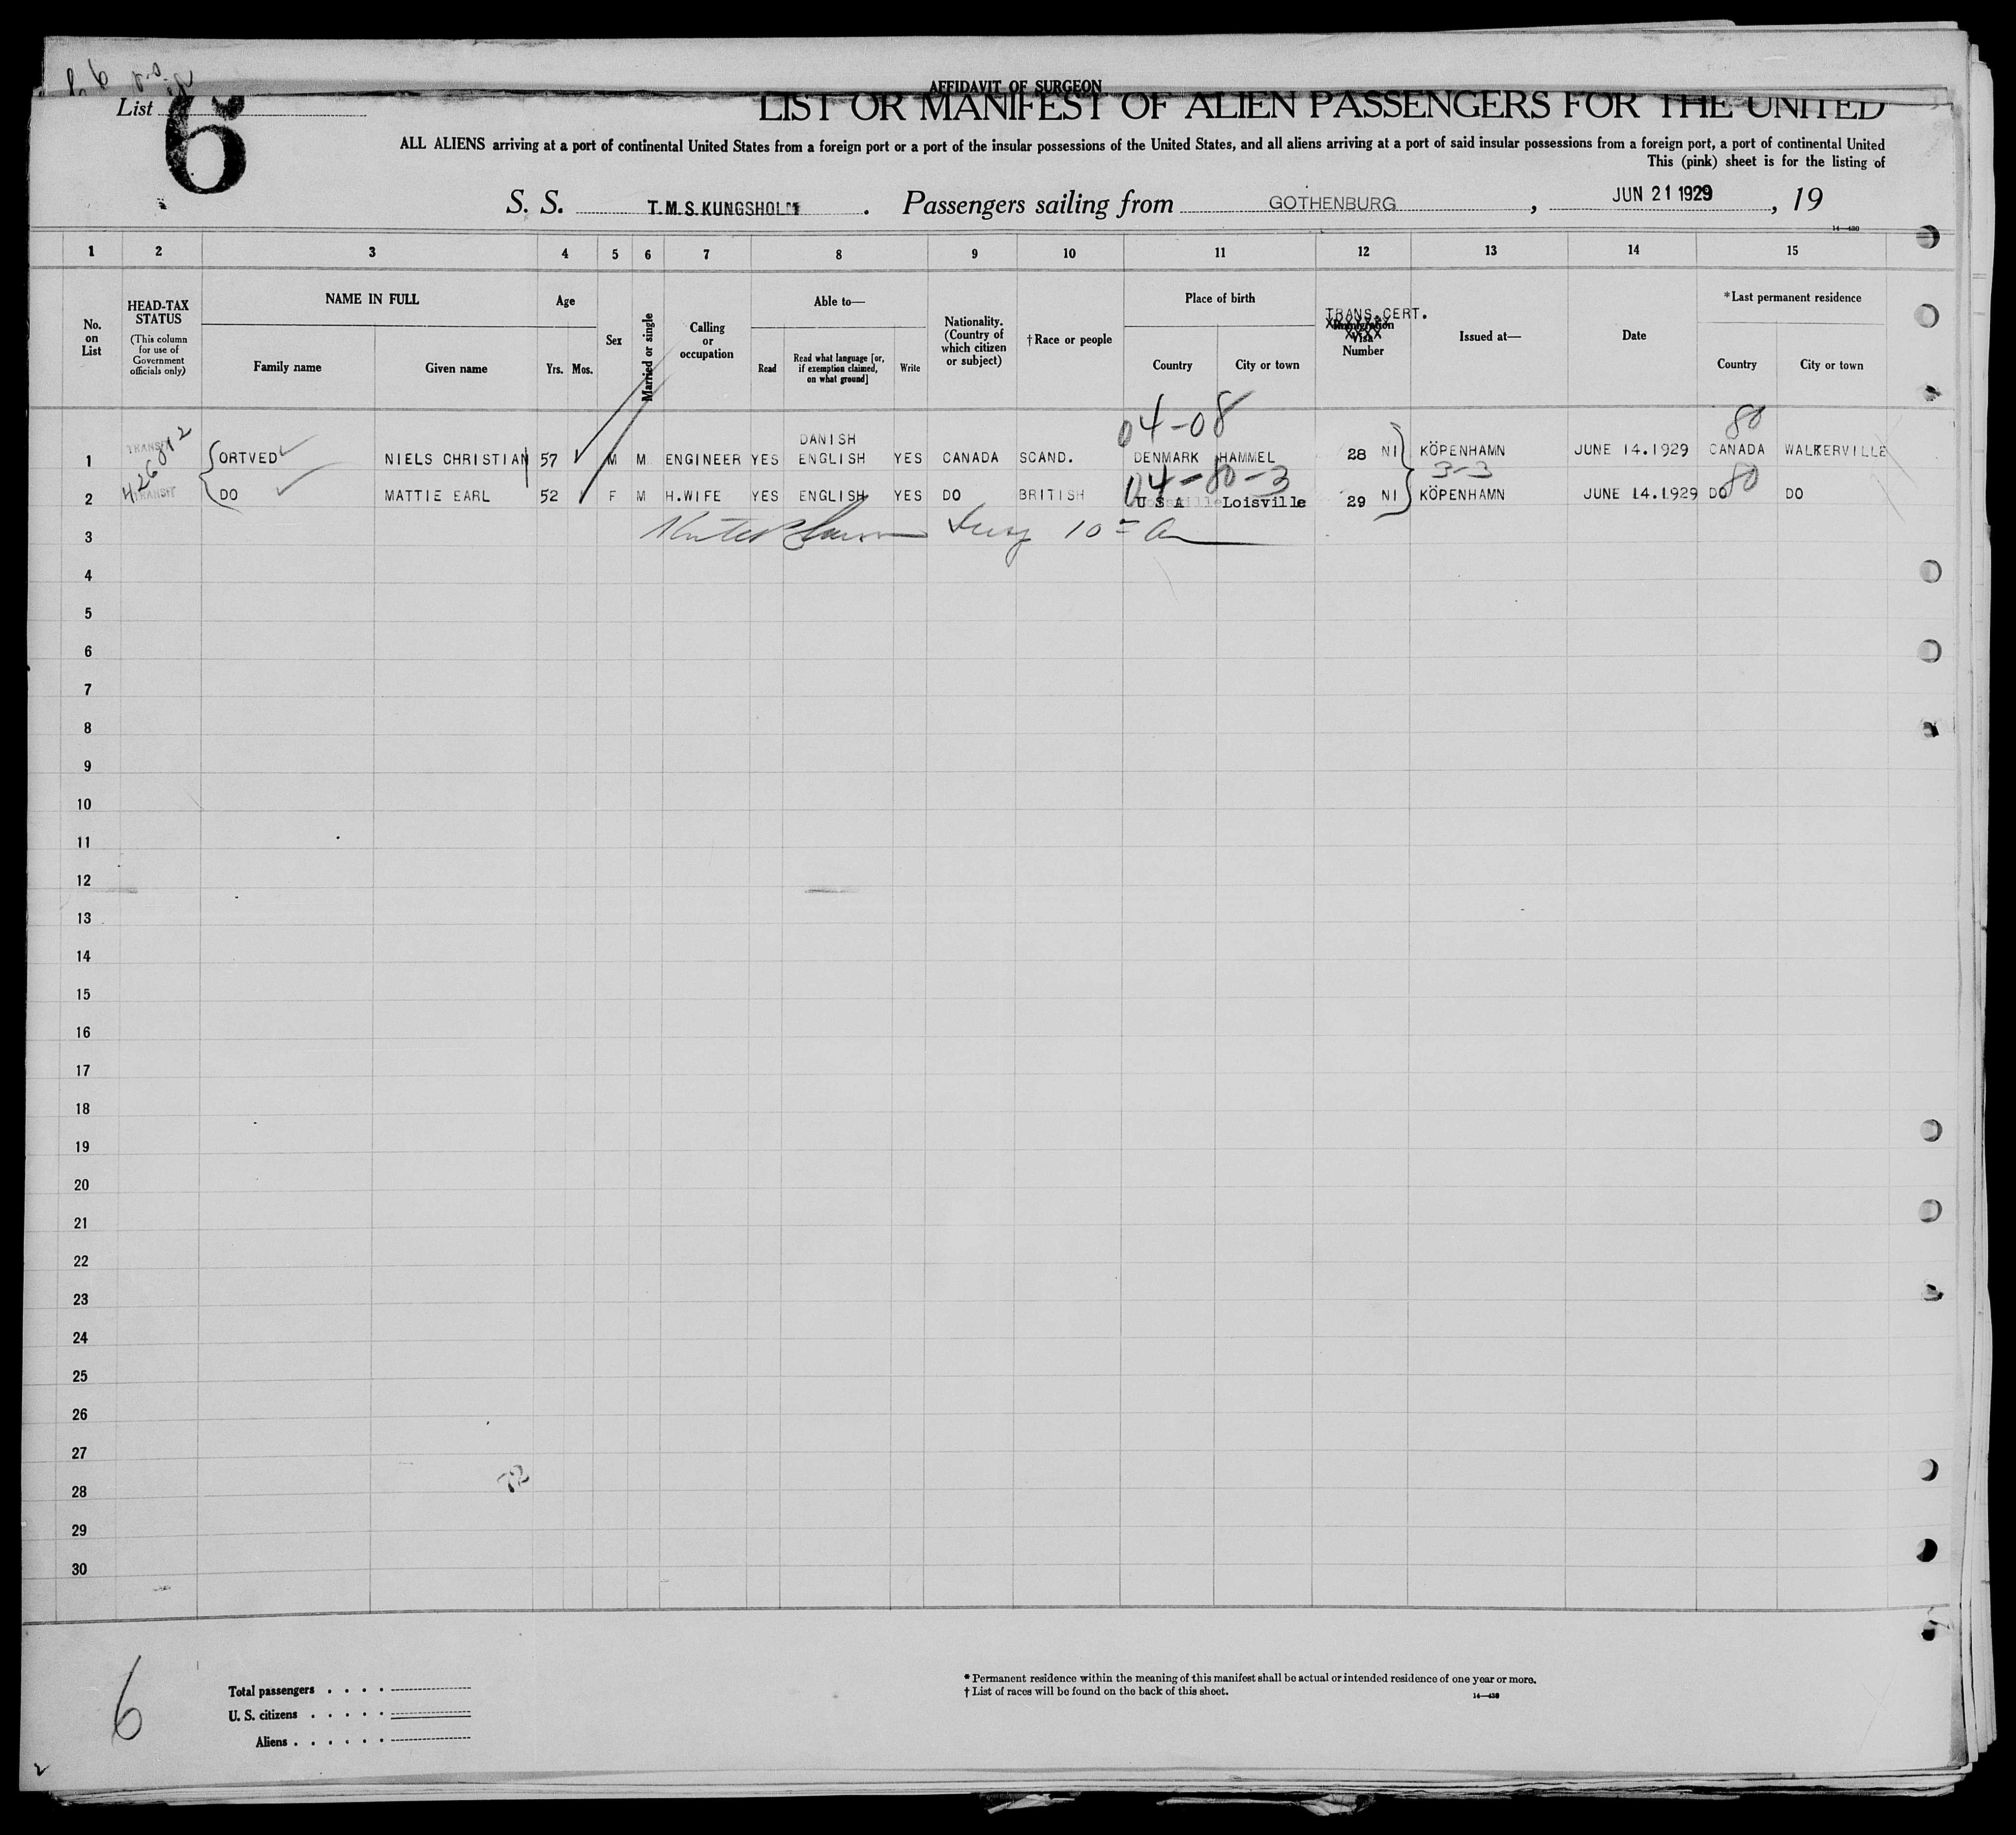 AFFIDAVIT OF SURGEON
List 6
LIST OR MANIFEST OF ALIEN PASSENGERS FOR THE UNITED
ALL ALIENS arriving at a port of continental United States from a foreign port or a port of the insular possessions of the United States, and all aliens arriving at a port of said insular possessions from a foreign port, a port of continental United
This (pink) sheet is for the listing of
S. S. T.M.S.KUNGSHOLM. Passengers sailing from GOTHENBURG, JUN 21 1929, 19
14—430
1 2 3 4 5 6 7 8 9 10 11 12 13 14 15
No. on List
HEAD-TAX STATUS
(This column for use of Government officials only)
NAME IN FULL
Family name Given name
Age
Yrs. Mos.
Sex
Married or single
Calling or occupation
Able to—
Read
Read what language [or, if exemption claimed, on what ground]
Write
Nationality. (Country of which citizen or subject)
†Race or people
Place of birth
Country City or town
TRANS.CERT.
Immigration Visa Number
Issued at—
Date
*Last permanent residence
Country City or town
04-08 80
DANISH
1 TRANSIT ORTVED NIELS CHRISTIAN 57 M M ENGINEER YES ENGLISH YES CANADA SCAND. DENMARK HAMMEL 28 NI KÖPENHAMN JUNE 14.1929 CANADA WALKERVILLE
426872
04-80-3 3-3 80
2 TRANSIT DO MATTIE EARL 52 F M H.WIFE YES ENGLISH YES DO BRITISH U S A Loisville 29 NI KÖPENHAMN JUNE 14.1929 DO DO
3
4
5
6
7
8
9
10
11
12
13
14
15
16
17
18
19
20
21
22
23
24
25
26
27
28
29
30
6
Total passengers . . . .
U. S. citizens . . . . .
Aliens . . . . . .
* Permanent residence within the meaning of this manifest shall be actual or intended residence of one year or more.
† List of races will be found on the back of this sheet.
14—430